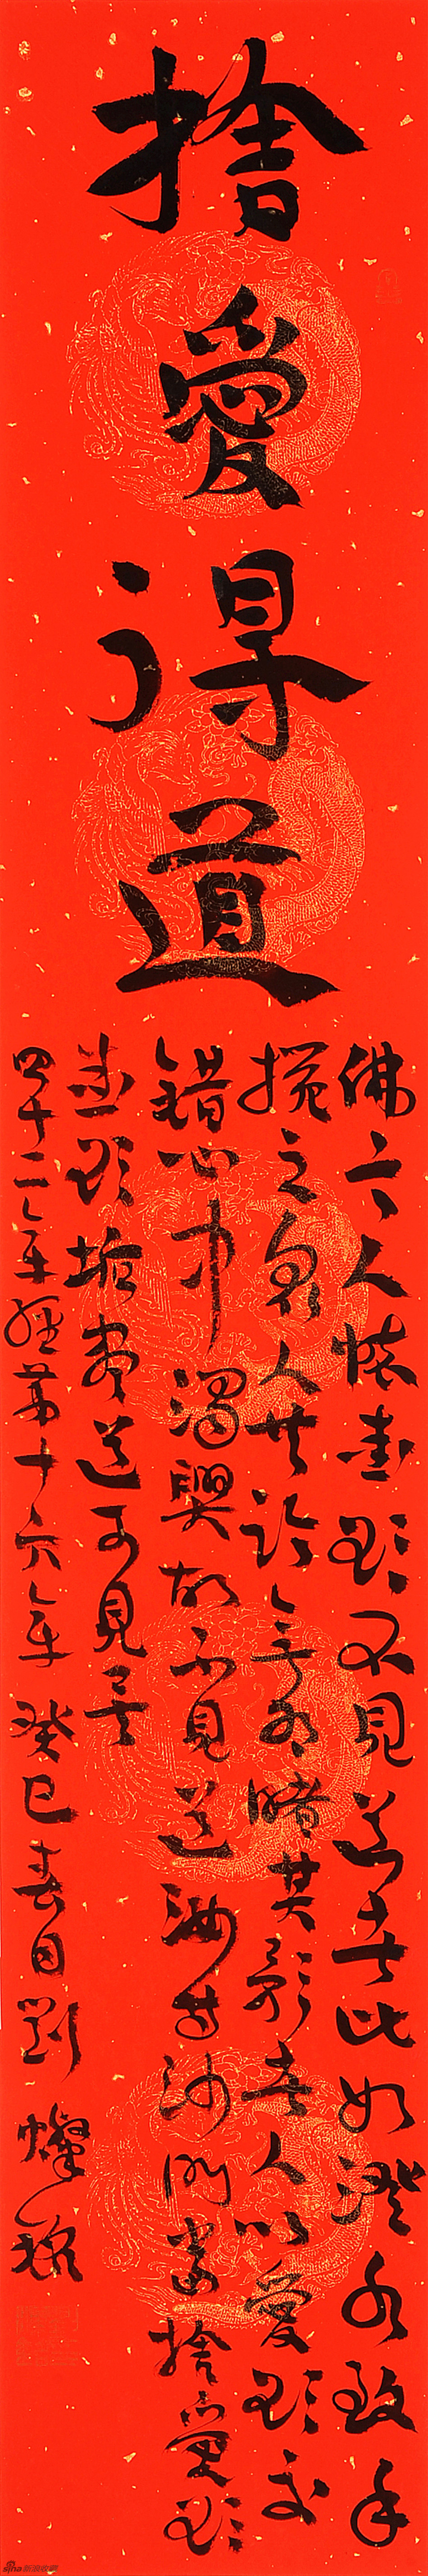 捨愛得道
佛言人懷愛欲不見道者比如澄水致手
攪之眾人共臨無有睹其影者人以愛欲交
錯心中濁興故不見道汝等沙門當捨愛欲
愛欲垢盡道可見矣
四十二章經第十六章 癸巳春日劉燦銘
sina新浪收藏